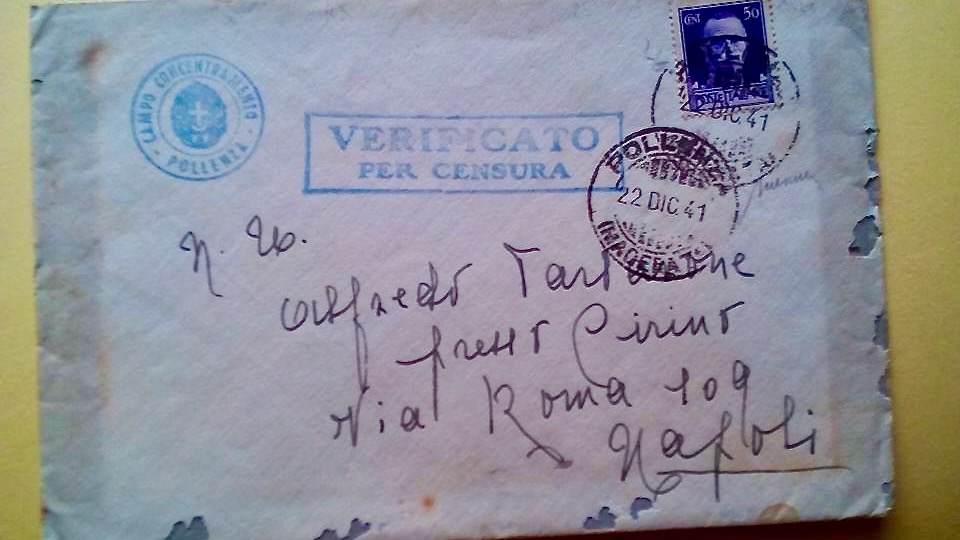 CAMPO CONCENTRAMENTO
POLLENZA
VERIFICATO
PER CENSURA
CENT 50
POSTE ITALIANE
DIC. 41
POLLENZA
22 DIC. 41
MACERATA
N. H.
Alfredo
presso Cirino
Via Roma 109
Napoli